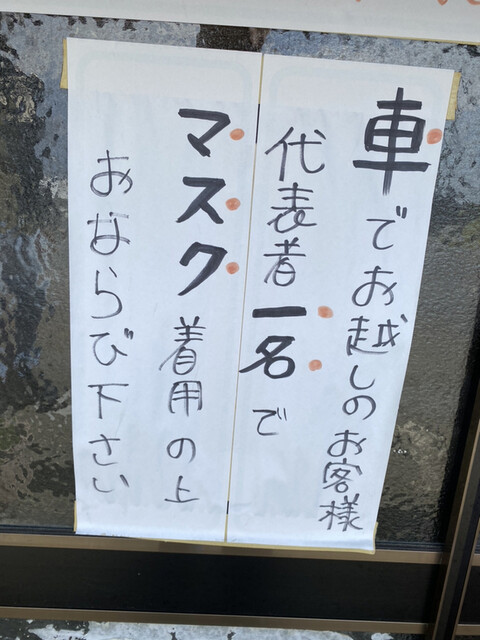 車でお越しのお客様
代表者一名で
マスク着用の上
おならび下さい